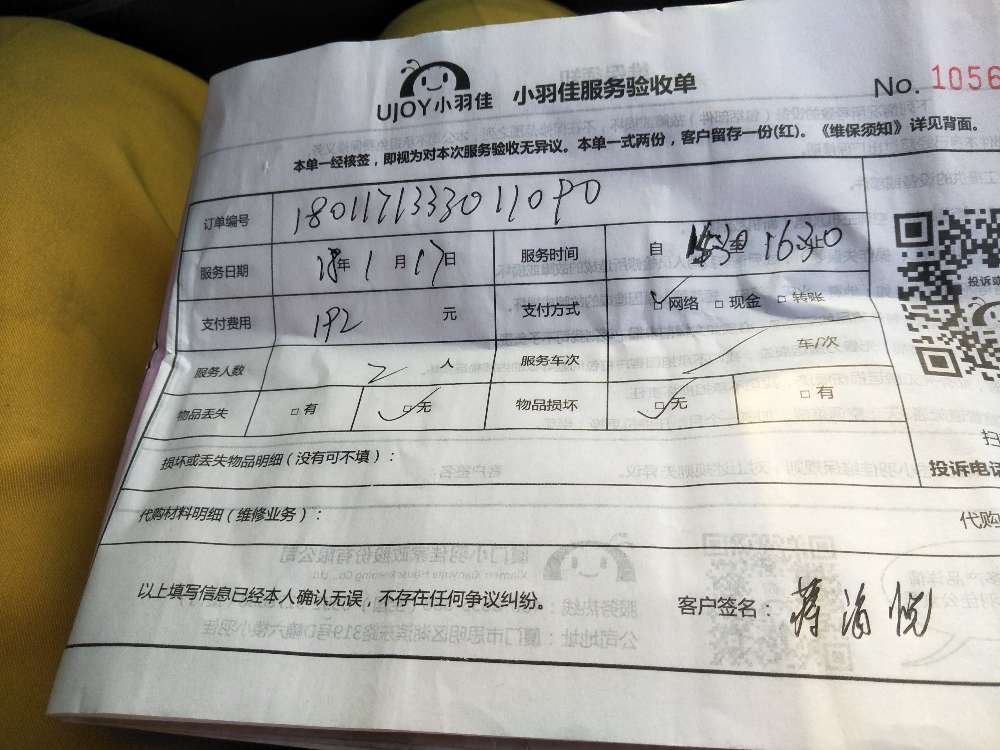 UJOY小羽佳 小羽佳服务验收单 No. 1056
本单一经核签，即视为对本次服务验收无异议。本单一式两份，客户留存一份(红)。《维保须知》详见背面。
订单编号 180117133301090
服务日期 18年1月17日 服务时间 自 至 1630止
支付费用 192 元 支付方式 ☑网络 □现金 □转账
投诉或
服务人数 2 人 服务车次 车/次
物品丢失 □有 ☑无 物品损坏 ☑无 □有
损坏或丢失物品明细（没有可不填）：
扫
投诉电话
代购材料明细（维修业务）：
代购
以上填写信息已经本人确认无误，不存在任何争议纠纷。
客户签名：蒋海悦